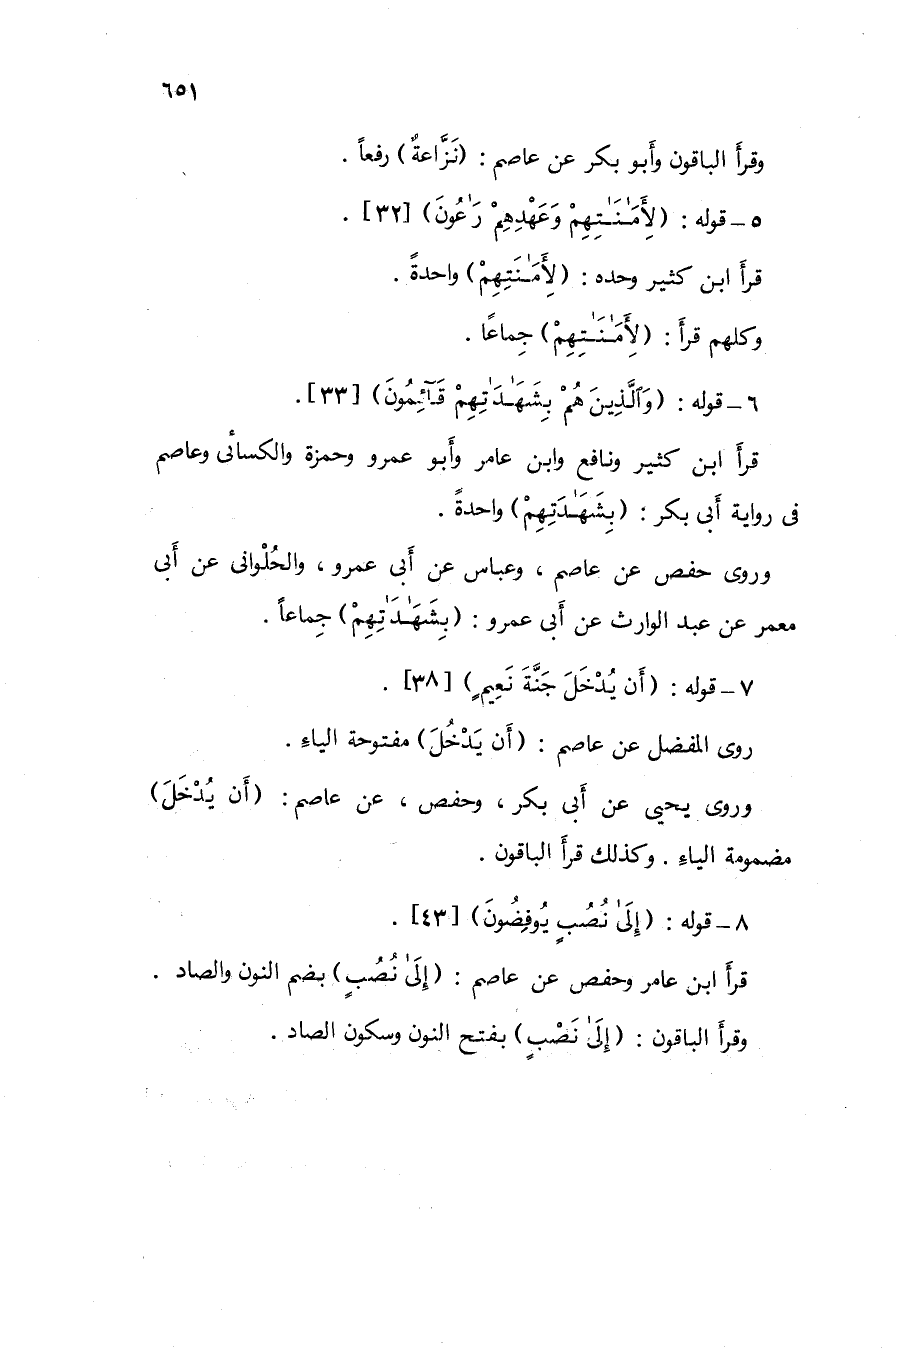 ٦٥١
وقرأ الباقون وأبو بكر عن عاصم : (نَزَّاعةٌ) رفعاً .
٥ ــ قوله : (لِأَمَـٰنَـٰتِهِمْ وَعَهْدِهِمْ رَٰعُونَ) [٣٢] .
قرأ ابن كثير وحده : (لِأَمَـٰنَتِهِمْ) واحدةً .
وكلهم قرأ : (لِأَمَـٰنَـٰتِهِمْ) جِماعًا .
٦ ــ قوله : (وَٱلَّذِينَ هُمْ بِشَهَـٰدَٰتِهِمْ قَآئِمُونَ) [٣٣].
قرأ ابن كثير ونافع وابن عامر وأبو عمرو وحمزة والكسائى وعاصم
فى رواية أبى بكر : (بِشَهَـٰدَتِهِمْ) واحدةً .
وروى حفص عن عاصم ، وعباس عن أبى عمرو ، والحُلْوانى عن أبى
معمر عن عبد الوارث عن أبى عمرو : (بِشَهَـٰدَٰتِهِمْ) جِماعاً .
٧ ــ قوله : (أَن يُدْخَلَ جَنَّةَ نَعِيمٍ) [٣٨] .
روى المفضل عن عاصم : (أَن يَدْخُلَ) مفتوحة الياء .
وروى يحيى عن أبى بكر ، وحفص ، عن عاصم : (أَن يُدْخَلَ)
مضمومة الياء . وكذلك قرأ الباقون .
٨ ــ قوله : (إِلَىٰ نُصُبٍ يُوفِضُونَ) [٤٣] .
قرأ ابن عامر وحفص عن عاصم : (إِلَىٰ نُصُبٍ) بضم النون والصاد .
وقرأ الباقون : (إِلَىٰ نَصْبٍ) بفتح النون وسكون الصاد .